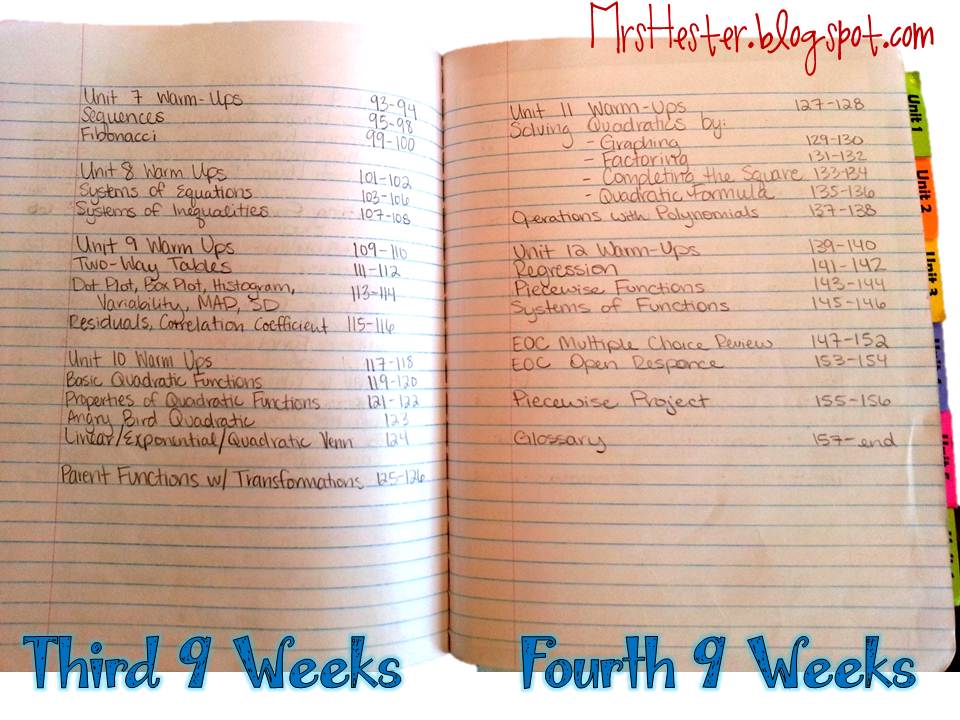 MrsHester.blogspot.com
Unit 7 Warm-Ups 93-94
Sequences 95-98
Fibonacci 99-100
Unit 8 Warm Ups 101-102
Systems of Equations 103-106
Systems of Inequalities 107-108
Unit 9 Warm Ups 109-110
Two-Way Tables 111-112
Dot Plot, Box Plot, Histogram,
Variability, MAD, SD 113-114
Residuals, Correlation Coefficient 115-116
Unit 10 Warm Ups 117-118
Basic Quadratic Functions 119-120
Properties of Quadratic Functions 121-122
Angry Bird Quadratic 123
Linear/Exponential/Quadratic Venn 124
Parent Functions w/ Transformations 125-126
Unit 11 Warm-Ups 127-128
Solving Quadratics by:
- Graphing 129-130
- Factoring 131-132
- Completing the Square 133-134
- Quadratic Formula 135-136
Operations with Polynomials 137-138
Unit 12 Warm-Ups 139-140
Regression 141-142
Piecewise Functions 143-144
Systems of Functions 145-146
EOC Multiple Choice Review 147-152
EOC Open Responce 153-154
Piecewise Project 155-156
Glossary 157-end
Unit 1
Unit 2
Unit 3
Third 9 Weeks
Fourth 9 Weeks